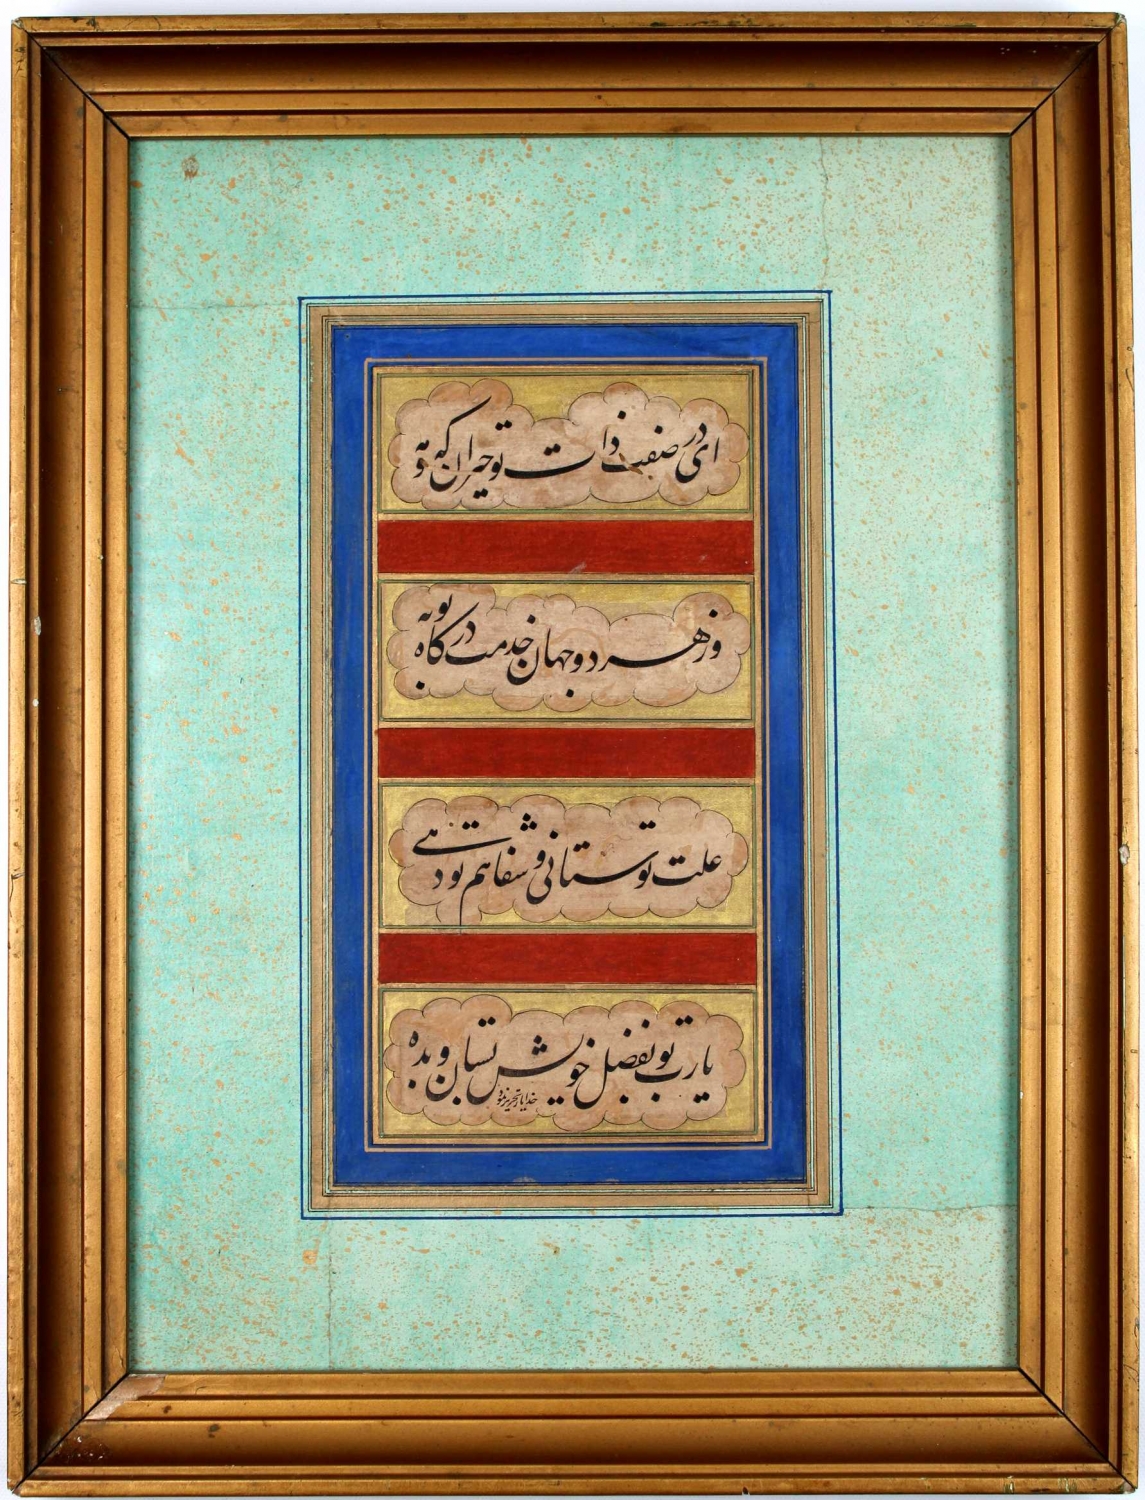 ای در صفت ذات تو حیران که و مه
وز هر دو جهان خدمت درکاه تو به
علت تو ستانی و شفا هم تو دهی
یارب تو بفضل خویش بستان و بده
خدایار تحریر نمود